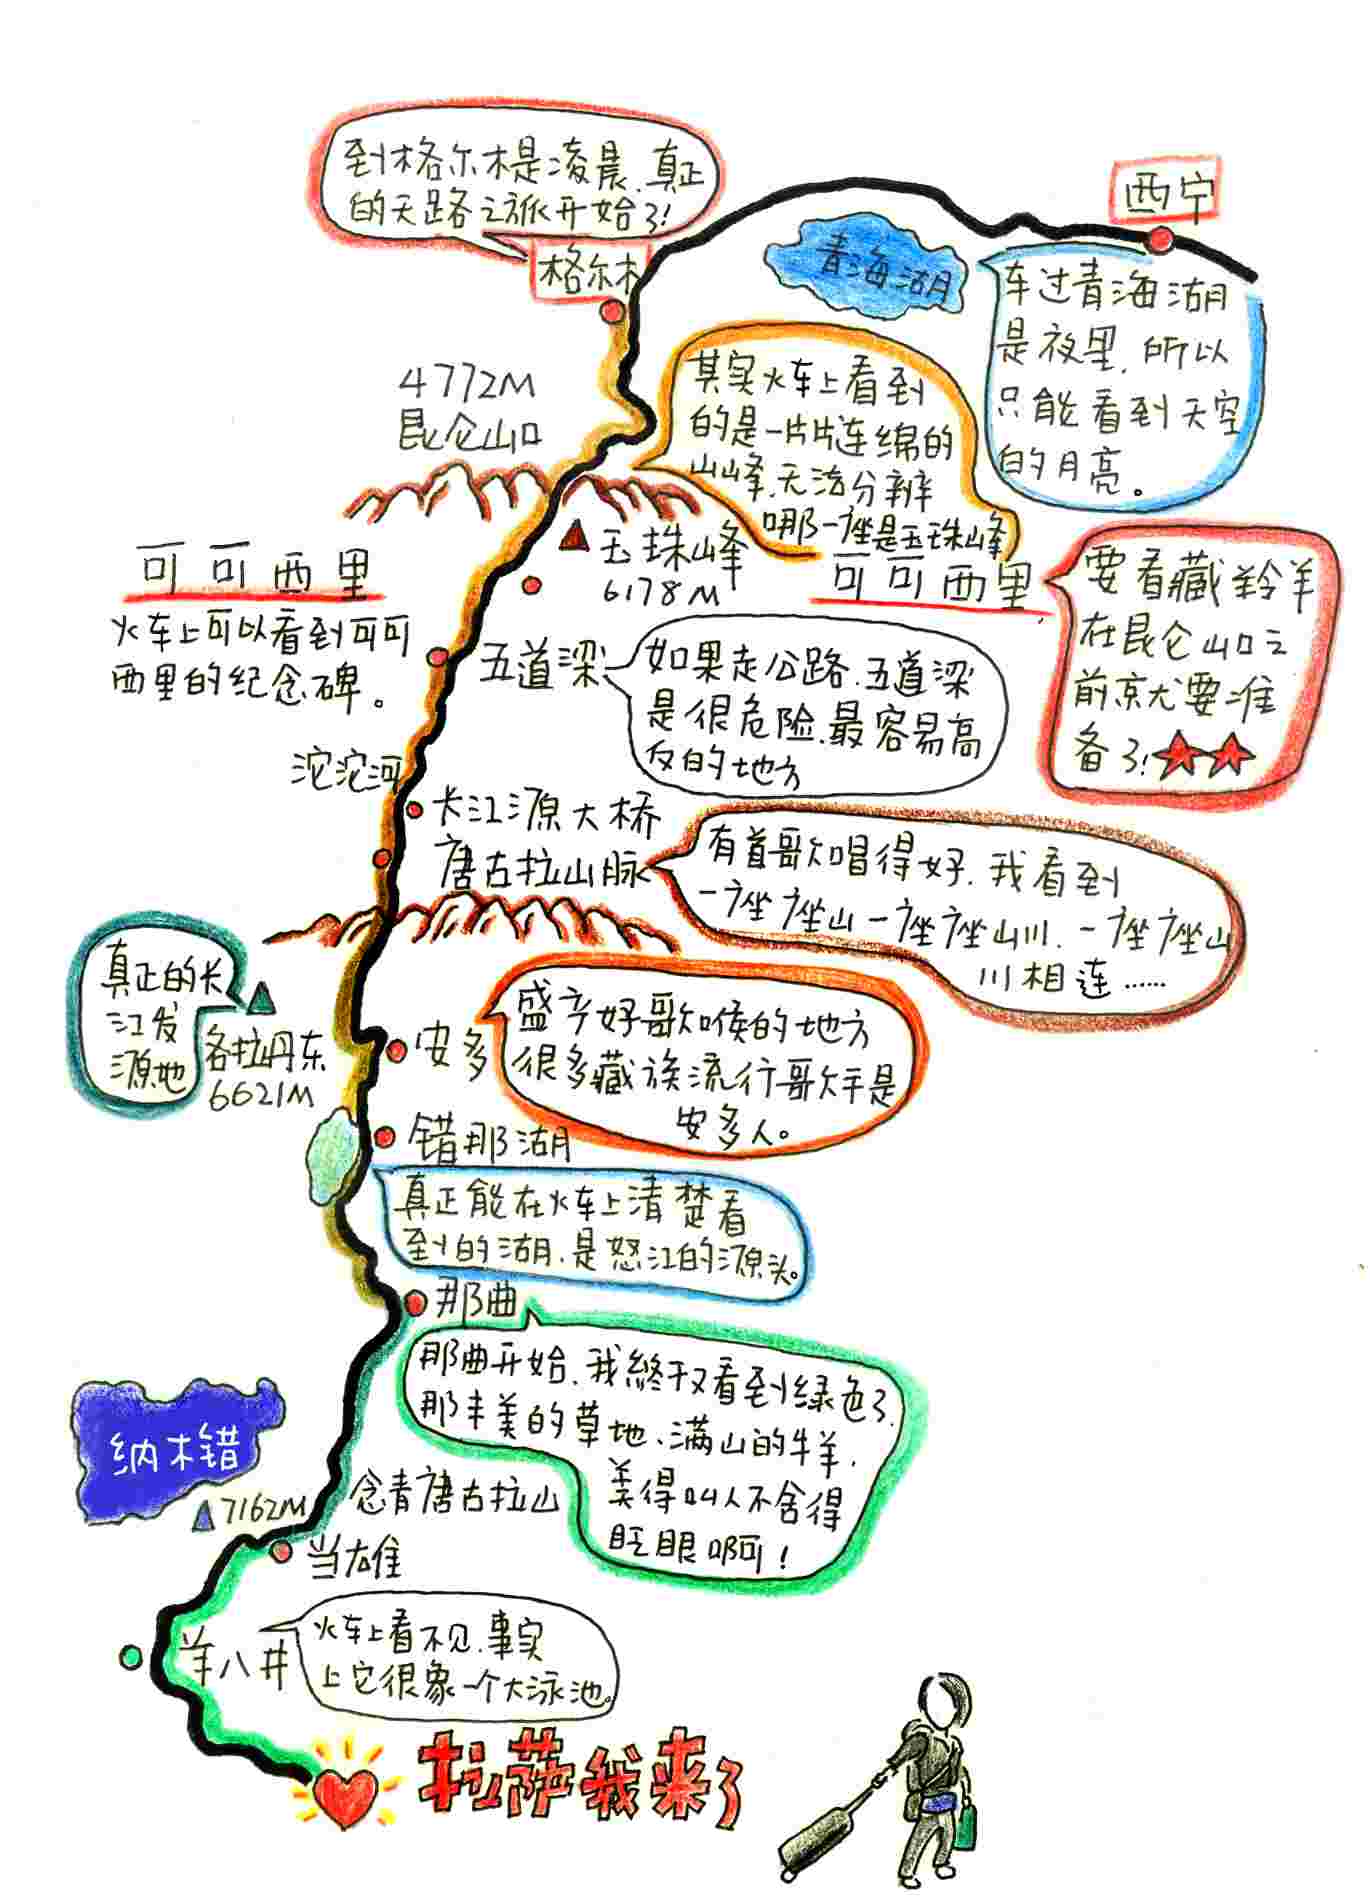 到格尔木是凌晨，真正
的天路之旅开始了！
西宁
格尔木
青海湖
车过青海湖
是夜里，所以
只能看到天空
的月亮。
4772M
昆仑山口
其实火车上看到
的是一片片连绵的
山峰，无法分辨
哪一座是玉珠峰
玉珠峰
6178M
可可西里
火车上可以看到可可
西里的纪念碑。
可可西里
要看藏羚羊
在昆仑山口之
前京尤要准
备了！
五道梁
如果走公路，五道梁
是很危险，最容易高
反的地方
沱沱河
长江源大桥
唐古拉山脉
有首歌唱得好，我看到
一座座山一座座山川，一座座山
川相连……
真正的长
江发
源地
各拉丹东
6621M
安多
盛产好歌喉的地方
很多藏族流行歌手是
安多人。
错那湖
真正能在火车上清楚看
到的湖，是怒江的源头。
那曲
那曲开始，我终于又看到绿色了，
那丰美的草地、满山的牛羊，
美得叫人不舍得
眨眼啊！
纳木错
7162M
念青唐古拉山
当雄
羊八井
火车上看不见，事实
上它很象一个大泳池。
拉萨我来了